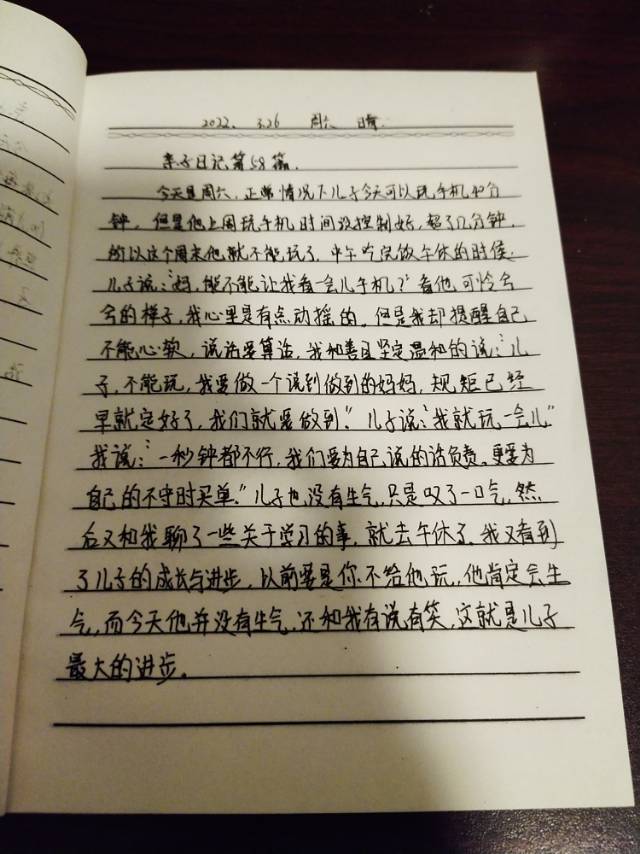 2022. 3.26 周六 晴.
亲子日记第58篇.
今天是周六,正常情况下儿子今天可以玩手机40分
钟,但是他上周玩手机时间没控制好,超了几分钟,
所以这个周末他就不能玩了,中午吃完饭午休的时候,
儿子说:“妈,能不能让我看一会儿手机?”看他可怜兮
兮的样子,我心里是有点动摇的,但是我却提醒自己
不能心软,说话要算话,我和善且坚定温和的说:“儿
子,不能玩,我要做一个说到做到的妈妈,规矩已经
早就定好了,我们就要做到.”儿子说:“我就玩一会儿”
我说:“一秒钟都不行,我们要为自己说的话负责.更要为
自己的不守时买单.”儿子也没有生气,只是叹了一口气,然
后又和我聊了一些关于学习的事,就去午休了.我又看到
了儿子的成长与进步,以前要是你不给他玩,他肯定会生
气,而今天他并没有生气,还和我有说有笑,这就是儿子
最大的进步。